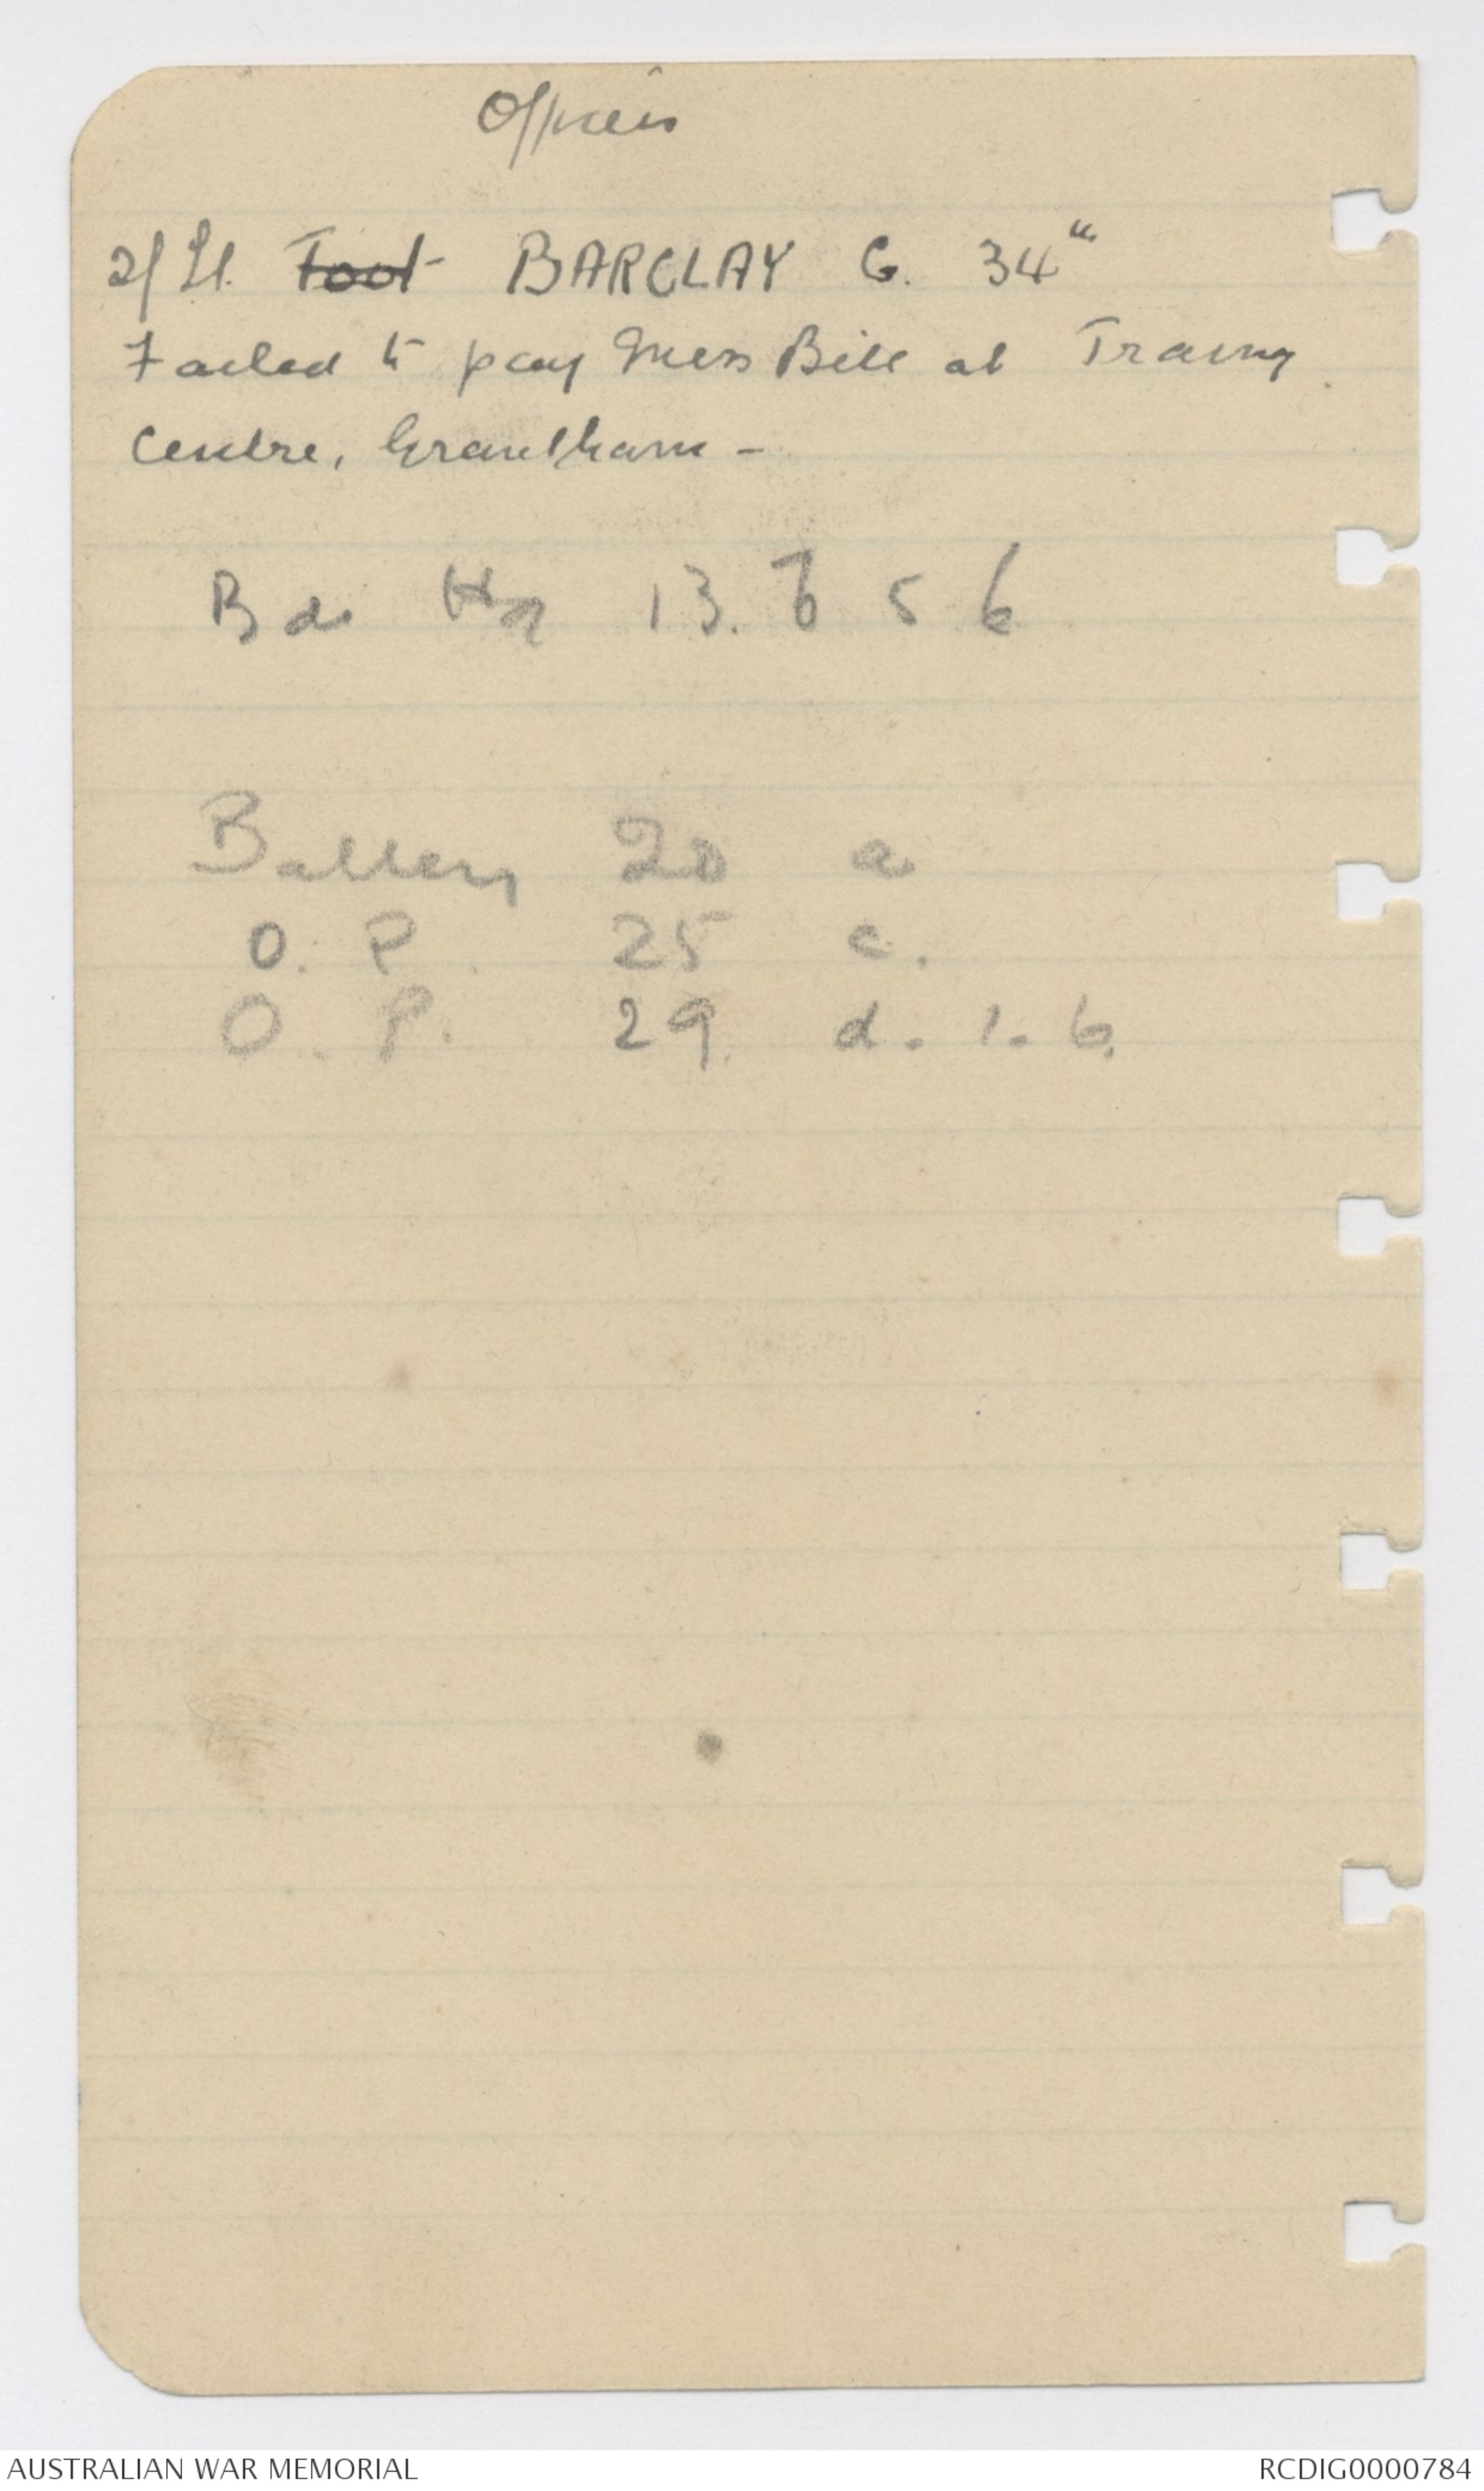 Officers
2/Lt. Foot BARCLAY G. 34th
Failed to pay Mess Bill at Traing
Centre, Grantham -
Bde Hq 13. 5 6
Battery 20 a
O. P. 25 c.
O. P. 29. d. 1. 6.
AUSTRALIAN WAR MEMORIAL
RCDIG0000784